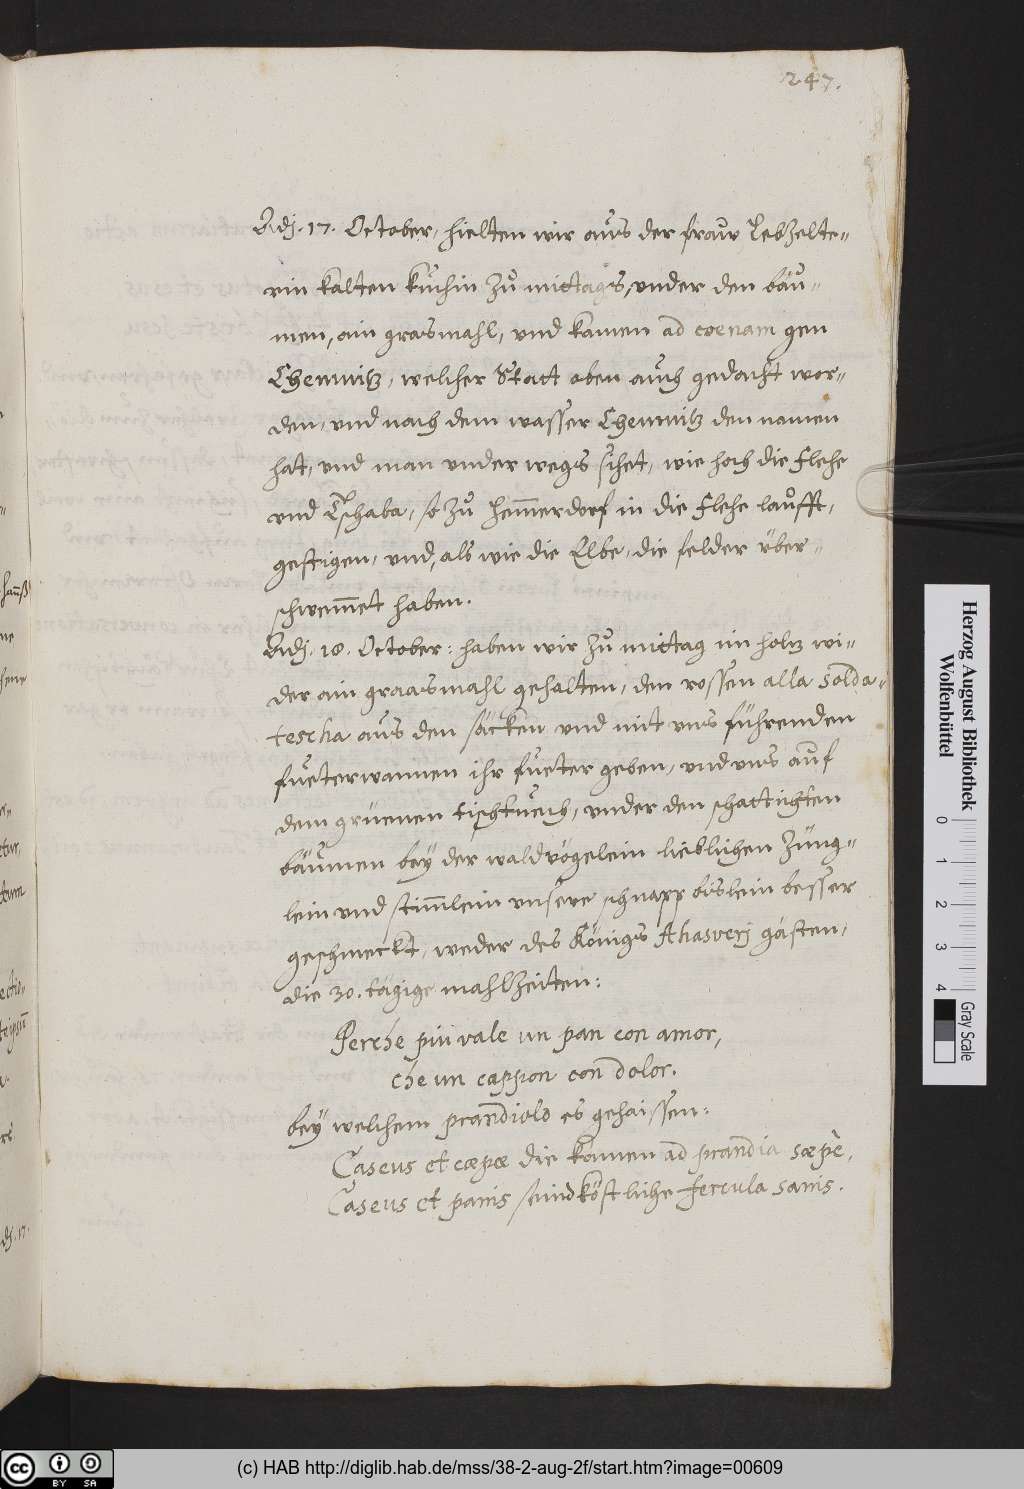 247.
Adj. 17. October, hielten wir aus der frauw Lebzelte-
rin kalten kuchin zu mittags, under den bäu-
men, ain grasmahl, und kamen ad coenam gen
Chemnitz, welcher Statt oben auch gedacht wor-
den, und nach dem wasser Chemnitz den namen
hat, und man underwegs sihet, wie hoch die Flehe
und Tschaba, so zu Hem̄erdorf in die Flehe laufft,
gestigen, und, als wie die Elbe, die felder über-
schwem̄et haben.
Adj. 18. October: haben wir zu mittag im holtz wi-
der ain graasmahl gehalten, den rossen alla solda-
tescha aus den säcken und mit uns führenden
fueterwannen ihr fueter geben, und uns auf
dem grüenen tischtuech, under den schattichten
bäumen bey der waldvögelein lieblichen züng-
lein und stim̄lein unsere schnappbislein besser
geschmeckt, weder des Königs Ahasverj gästen,
die 30. tägige mahlzeiten:
Perche più vale un pan con amor,
che un cappon con dolor.
bey welchem prandiolo es gehaissen:
Caseus et cæpæ die komen ad prandia sæpè,
Caseus et panis seind köstliche fercula sanis.
Herzog August Bibliothek
Wolfenbüttel
0 1 2 3 4
Gray Scale
cc BY SA
(c) HAB http://diglib.hab.de/mss/38-2-aug-2f/start.htm?image=00609